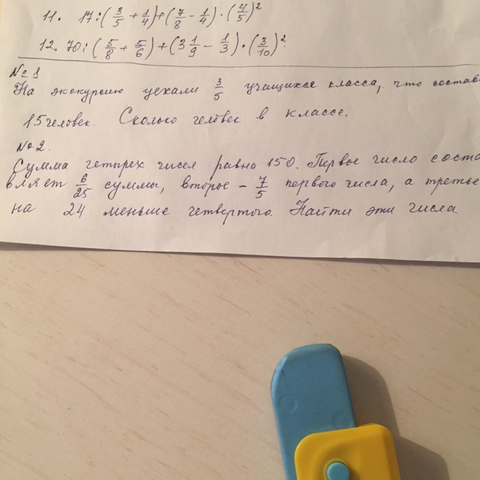 11. 17:(3/5 + 1/4)+(7/8 - 1/4)·(4/5)²
12. 70:(5/8 + 5/6)+(3 1/9 - 1/3)·(3/10)²
№1
На экскурсию уехали 3/5 учащихся класса, что состав
15 человек. Сколько человек в классе.
№2.
Сумма четырех чисел равна 150. Первое число соста
вляет 6/25 суммы, второе - 7/5 первого числа, а третье
на 24 меньше четвертого. Найти эти числа